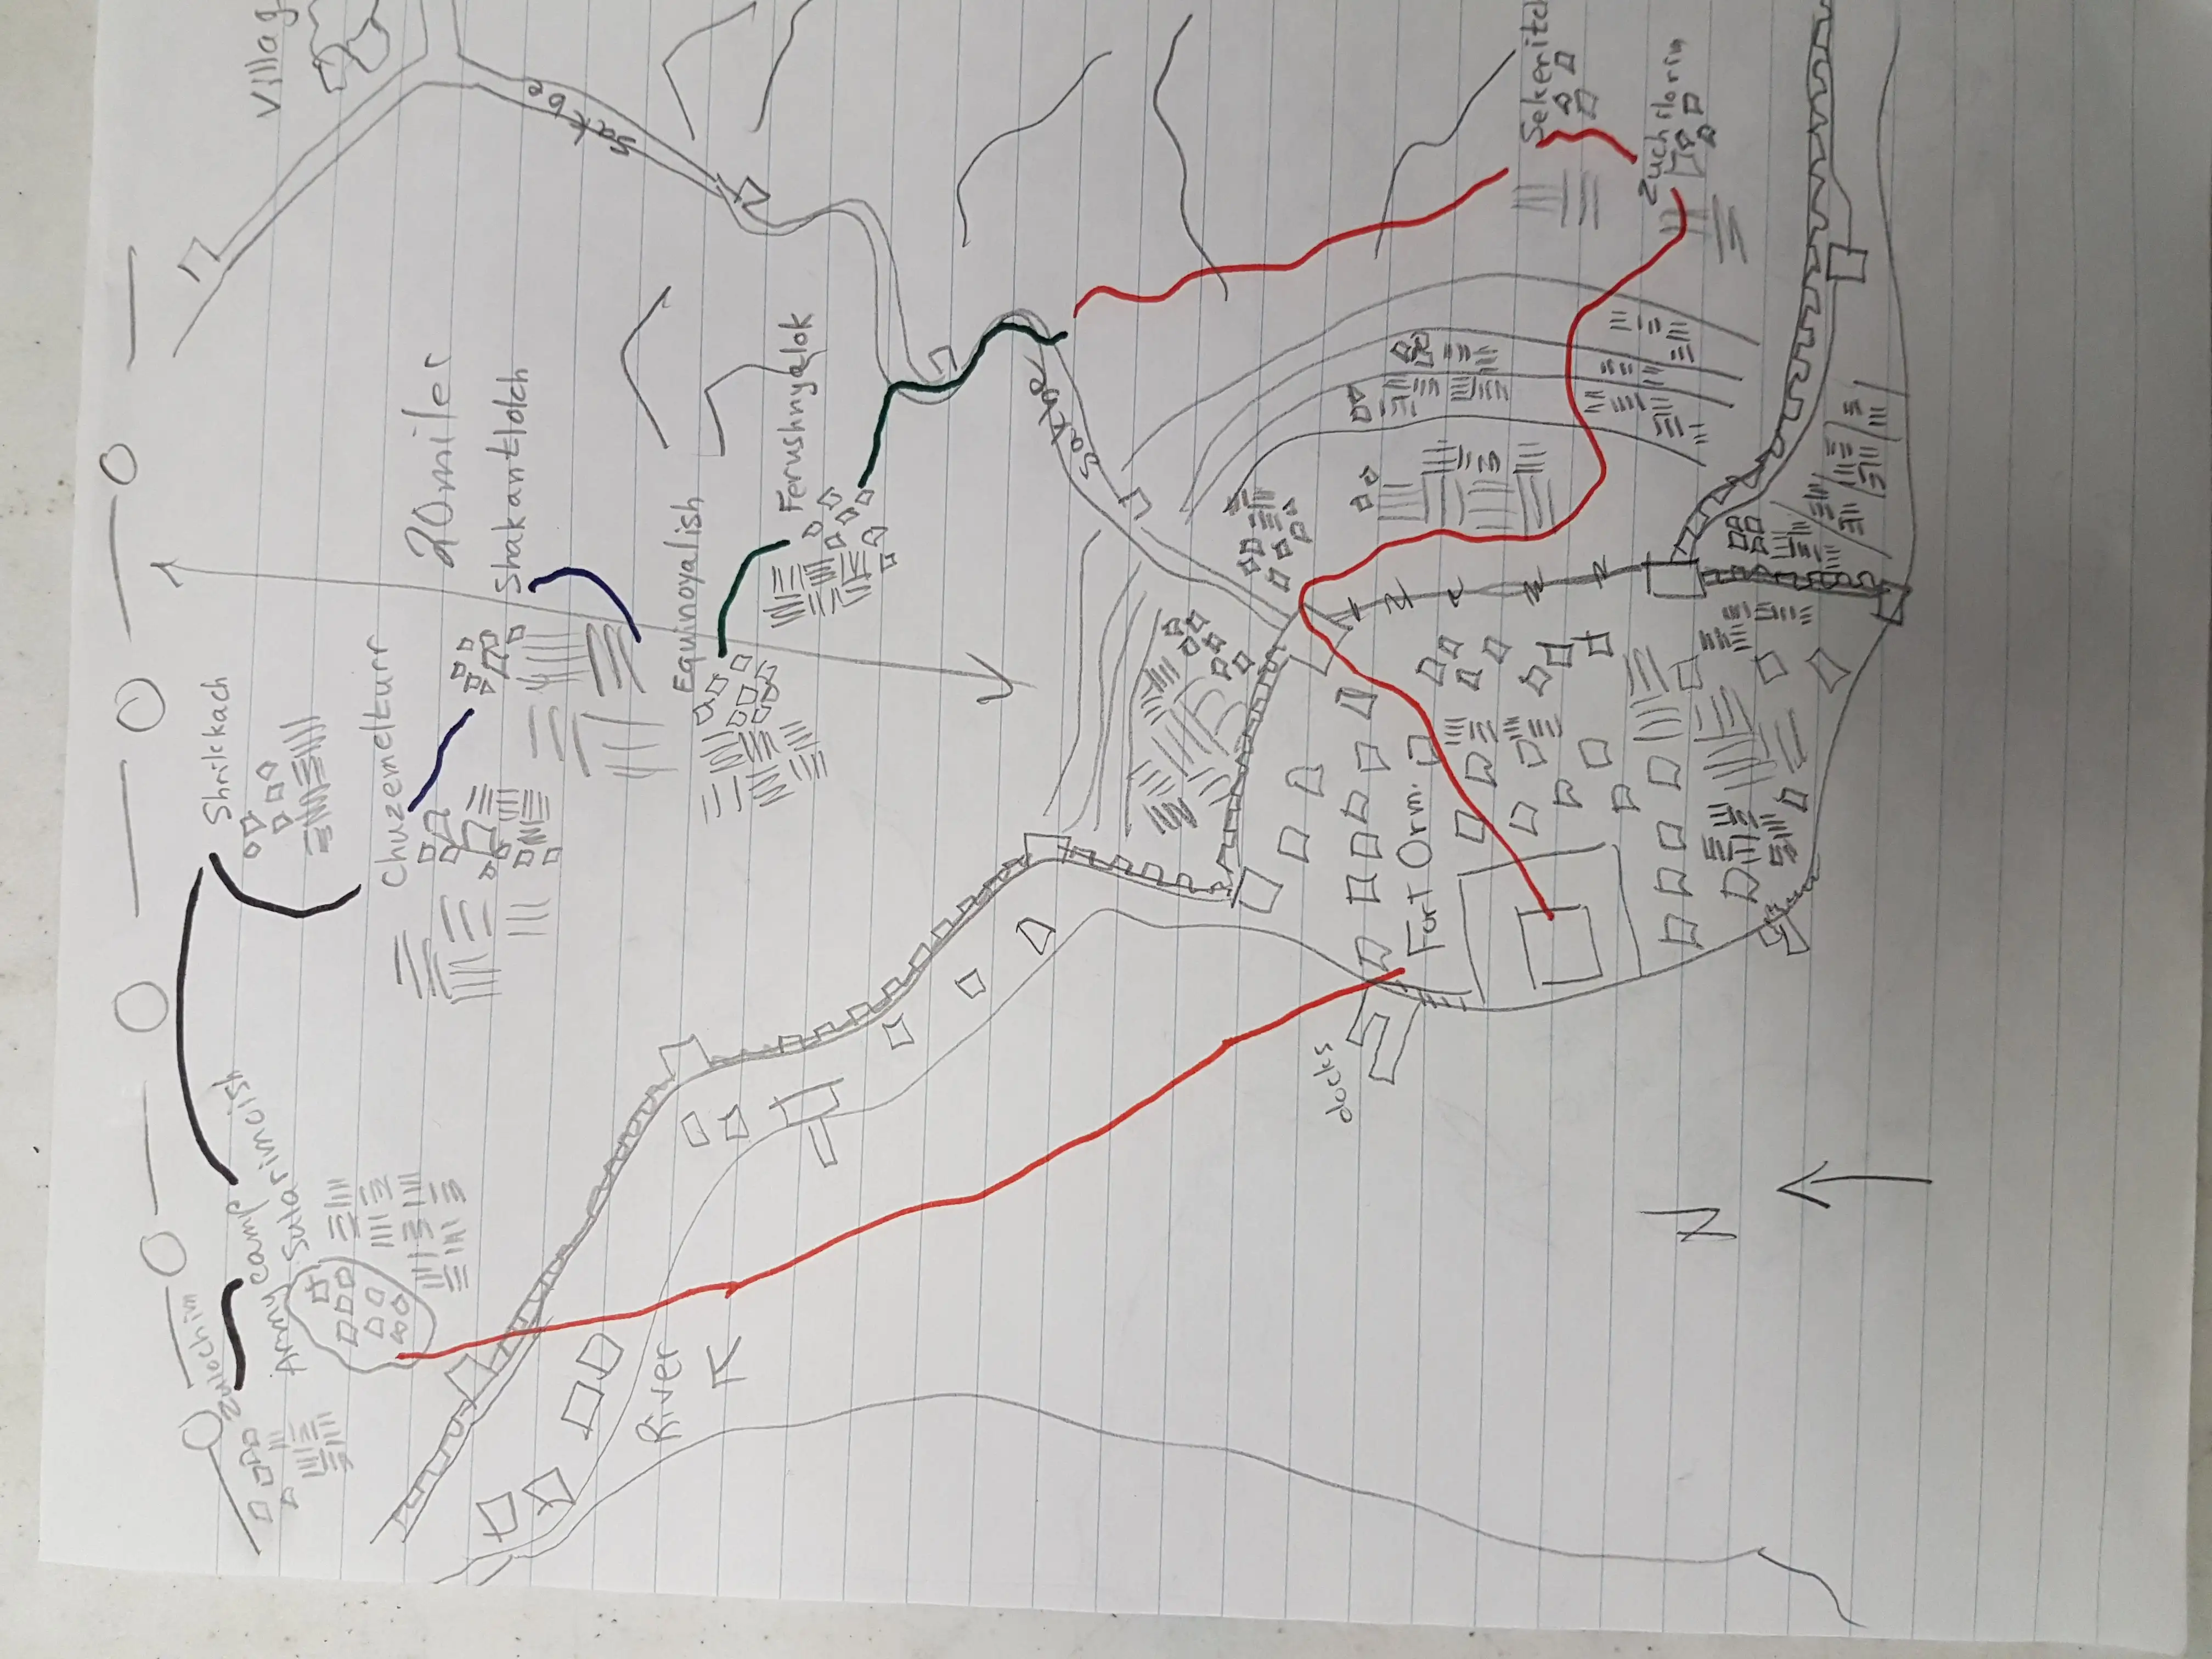 Villag
sackbe
20 miler
Shakantlotch
Ferushnyalok
Equinoyalish
Chuzemelturr
Shrikkach
Army camp
Sularimclish
Zulochim
sackbe
Sekeritch
Zuchilorin
Fort Orm.
docks
River
N